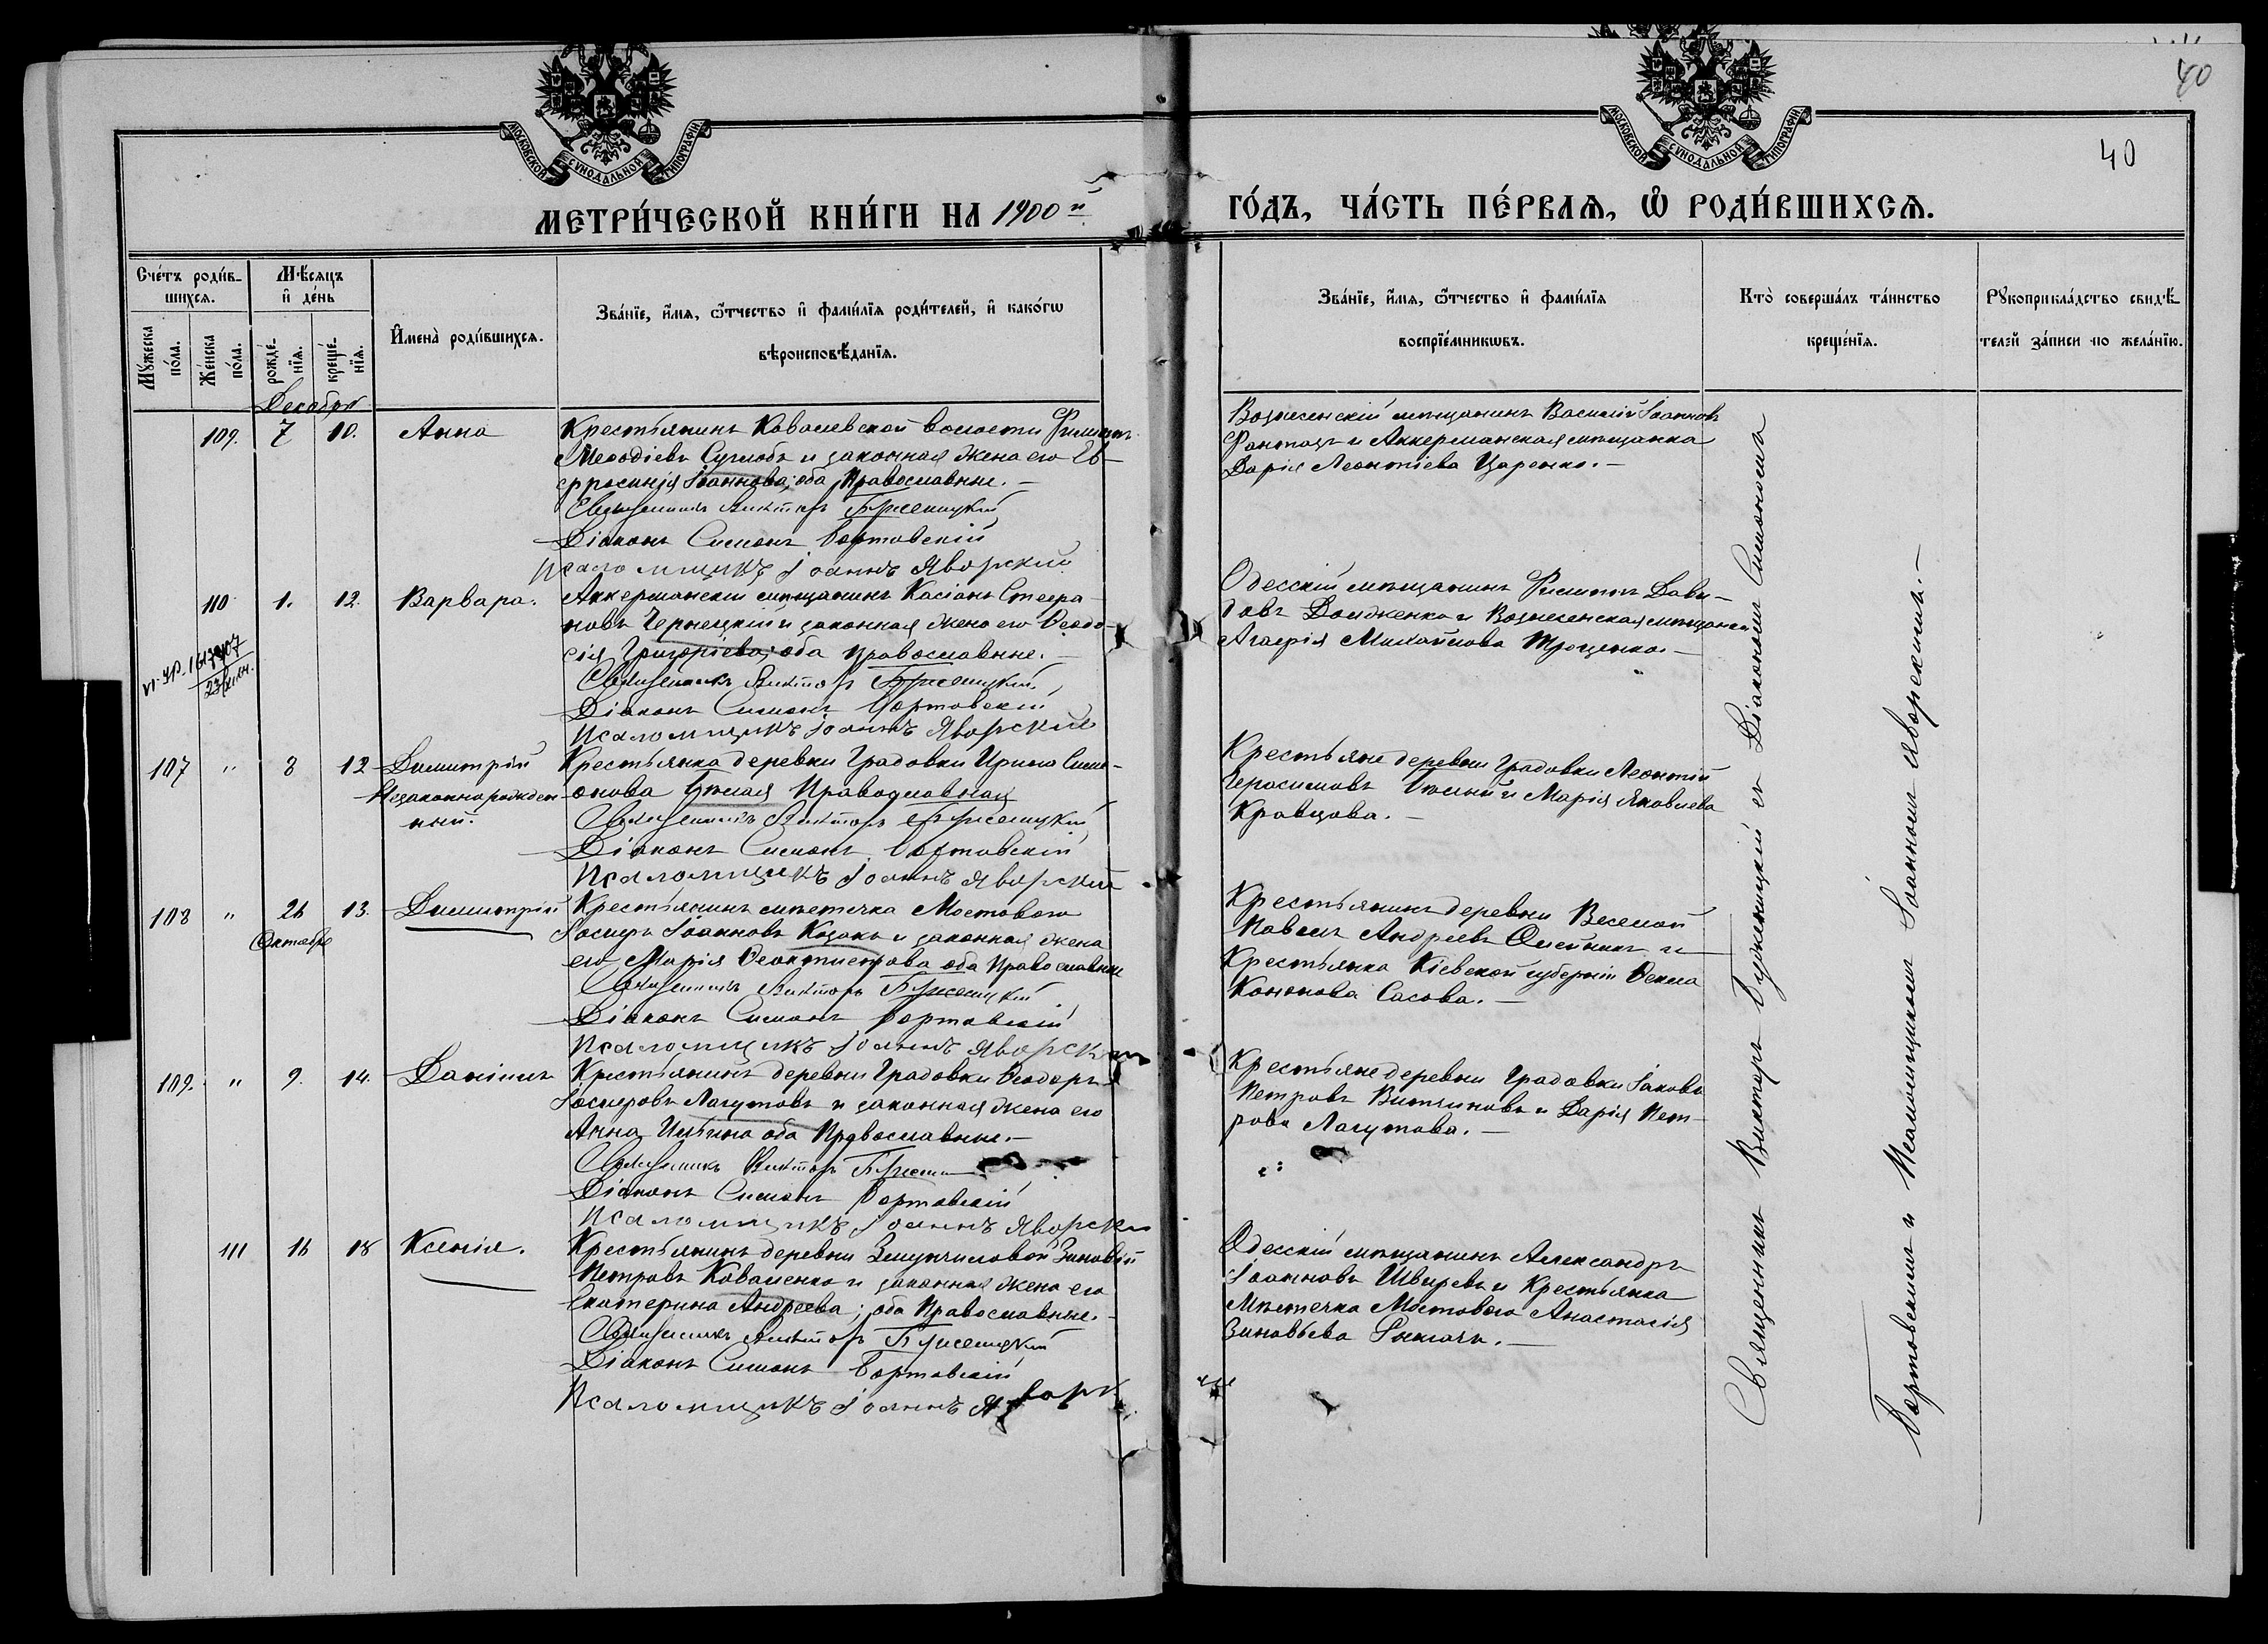 40
40
МОСКОВСКОЙ СѴНОДАЛЬНОЙ ТИПОГРАФІИ.
МОСКОВСКОЙ СѴНОДАЛЬНОЙ ТИПОГРАФІИ.
МЕТРИ́ЧЕСКОЙ КНИ́ГИ НА 1900й
ГО́ДЪ, ЧА́СТЬ ПЕ́РВАѦ, Ѡ҆ РОДИ́ВШИХСѦ.
Сче́тъ роди́в-
шихсѧ.
Мꙋ́жеска по́ла.
Же́нска по́ла.
Мѣ́сѧцъ
и҆ де́нь
рожде́-нїѧ.
креще́-нїѧ.
И҆мена̀ роди́вшихсѧ.
Зва́нїе, и҆́мѧ, ѻ҆́тчество и҆ фами́лїѧ роди́телей, и҆ како́гѡ
вѣроисповѣ́данїѧ.
Зва́нїе, и҆́мѧ, ѻ҆́тчество и҆ фами́лїѧ
воспрїе́мникѡвъ.
Кто̀ соверша́лъ та́инство
креще́нїѧ.
Рꙋкоприкла́дство свидѣ́-
телей за́писи по жела́нїю.
Декабря
109. 7 10. Анна
Крестьянинъ Ковалевской волости Филиппъ
Меѳодіевъ Суглобъ и законная жена его Ев-
фросинія Іоаннова; оба Православные.
Священникъ Викторъ Буженицкій
Діаконъ Симонъ Бортовскій
Псаломщикъ Іоаннъ Яворскій
Вознесенскій мѣщанинъ Василій Іоанновъ
и Аккерманская мѣщанка
Дарія Леонтіева Царенко.
110 1. 12. Варвара.
Аккерманскій мѣщанинъ Касіанъ Стефа-
новъ Чернецкій и законная жена его Ѳеодо-
сія Григоріева; оба православные.
Священникъ Викторъ Буженицкій
Діаконъ Симонъ Бортовскій
Псаломщикъ Іоаннъ Яворскій
Одесскій мѣщанинъ Филиппъ Дави-
довъ Долдженко и Вознесенская мѣщанка
Агафія Михайлова Троценко.
107 " 8 12 Димитрій
Незаконнорожден-
ный.
Крестьянка деревни Градовки Ирина Сим-
онова Православная
Священникъ Викторъ Буженицкій
Діаконъ Симонъ Бортовскій
Псаломщикъ Іоаннъ Яворскій
Крестьяне деревни Градовки Леонтій
Герасимовъ и Марія Яковлева
Кравцова.
108 " 26 13. Димитрій
Октября
Крестьянинъ мѣстечка Мостового
Іосифъ Іоанновъ Козакъ и законная жена
его Марія Ѳеоктистова оба Православные
Священникъ Викторъ Буженицкій
Діаконъ Симонъ Бортовскій
Псаломщикъ Іоаннъ Яворскій
Крестьянинъ деревни Веселой
Павелъ Андреевъ Олейникъ и
Крестьянка Кіевской губерніи Ѳекла
Кононова Сасова.
109. " 9. 14. Даніилъ
Крестьянинъ деревни Градовки Ѳеодоръ
Іосифовъ Лагутовъ и законная жена его
Анна Ильина оба Православные.
Священникъ Викторъ
Діаконъ Симонъ Бортовскій
Псаломщикъ Іоаннъ Яворскі
Крестьяне деревни Градовки Іаковъ
Петровъ и Дарія Пет-
рова Лагутова.
111 16 18 Ксенія.
Крестьянинъ деревни Зиновій
Петровъ Коваленко и законная жена его
Екатерина Андреева; оба Православные.
Священникъ Викторъ Буженицкій
Діаконъ Симонъ Бортовскій
Псаломщикъ Іоаннъ Яворк
Одесскій мѣщанинъ Александръ
Іоанновъ Швыревъ и Крестьянка
Мѣстечка Мостового Анастасія
Зиновьева
Священникъ Викторъ Буженицкій съ Діакономъ Симономъ
Бортовскимъ и Псаломщикомъ Іоанномъ Яворскимъ.